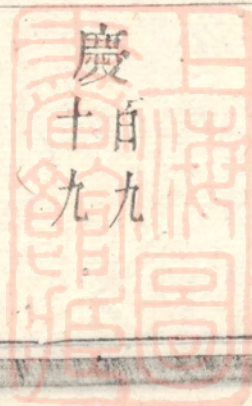 慶
百九
十九
上海圖
書館藏